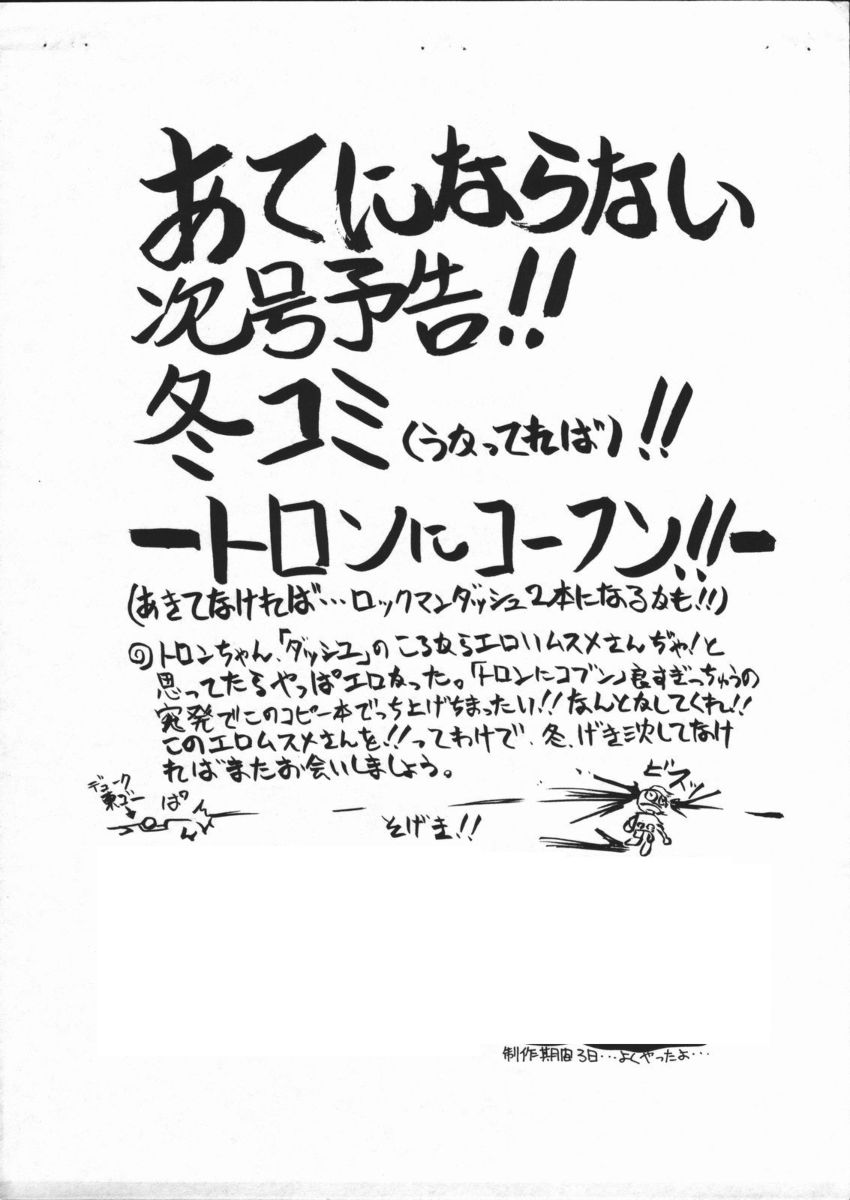 あてにならない
次号予告!!
冬コミ(うかってれば)!!
ートロンにコーフン!!ー
(あきてなければ…ロックマンダッシュ2本になるかも!!)
トロンちゃん、「ダッシュ」のころからエロいムスメさんぢゃ!と
思ってたらやっぱエロかった。「トロンにコブン」良すぎっちゅうの
突発でこのコピー本でっち上げちまったい!!なんとかしてくれ!!
このエロムスメさんを!!ってわけで、冬、げき沈してなけ
ればまたお会いしましょう。
デューク
東ゴー
ぱん
そげき!!
ビスッ
制作期間3日…よくやったよ…